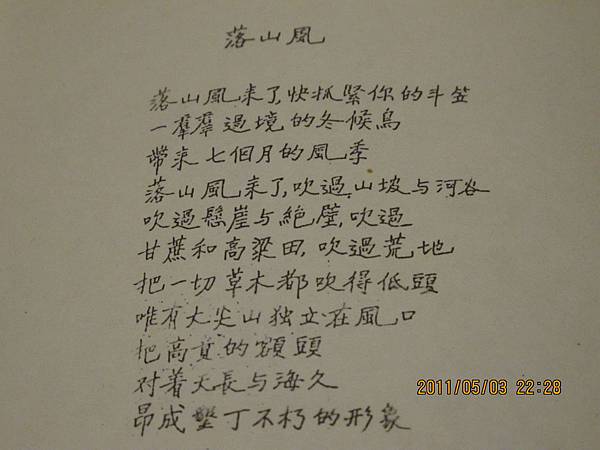 落山風
落山風来了,快抓緊你的斗笠
一羣羣過境的冬候鳥
帶来七個月的風季
落山風来了,吹過山坡与河谷
吹過懸崖与絕壁,吹過
甘蔗和高粱田,吹過荒地
把一切草木都吹得低頭
唯有大尖山独立在風口
把高亢的額頭
对着天長与海久
昂成墾丁不朽的形象
2011/05/03 22:28